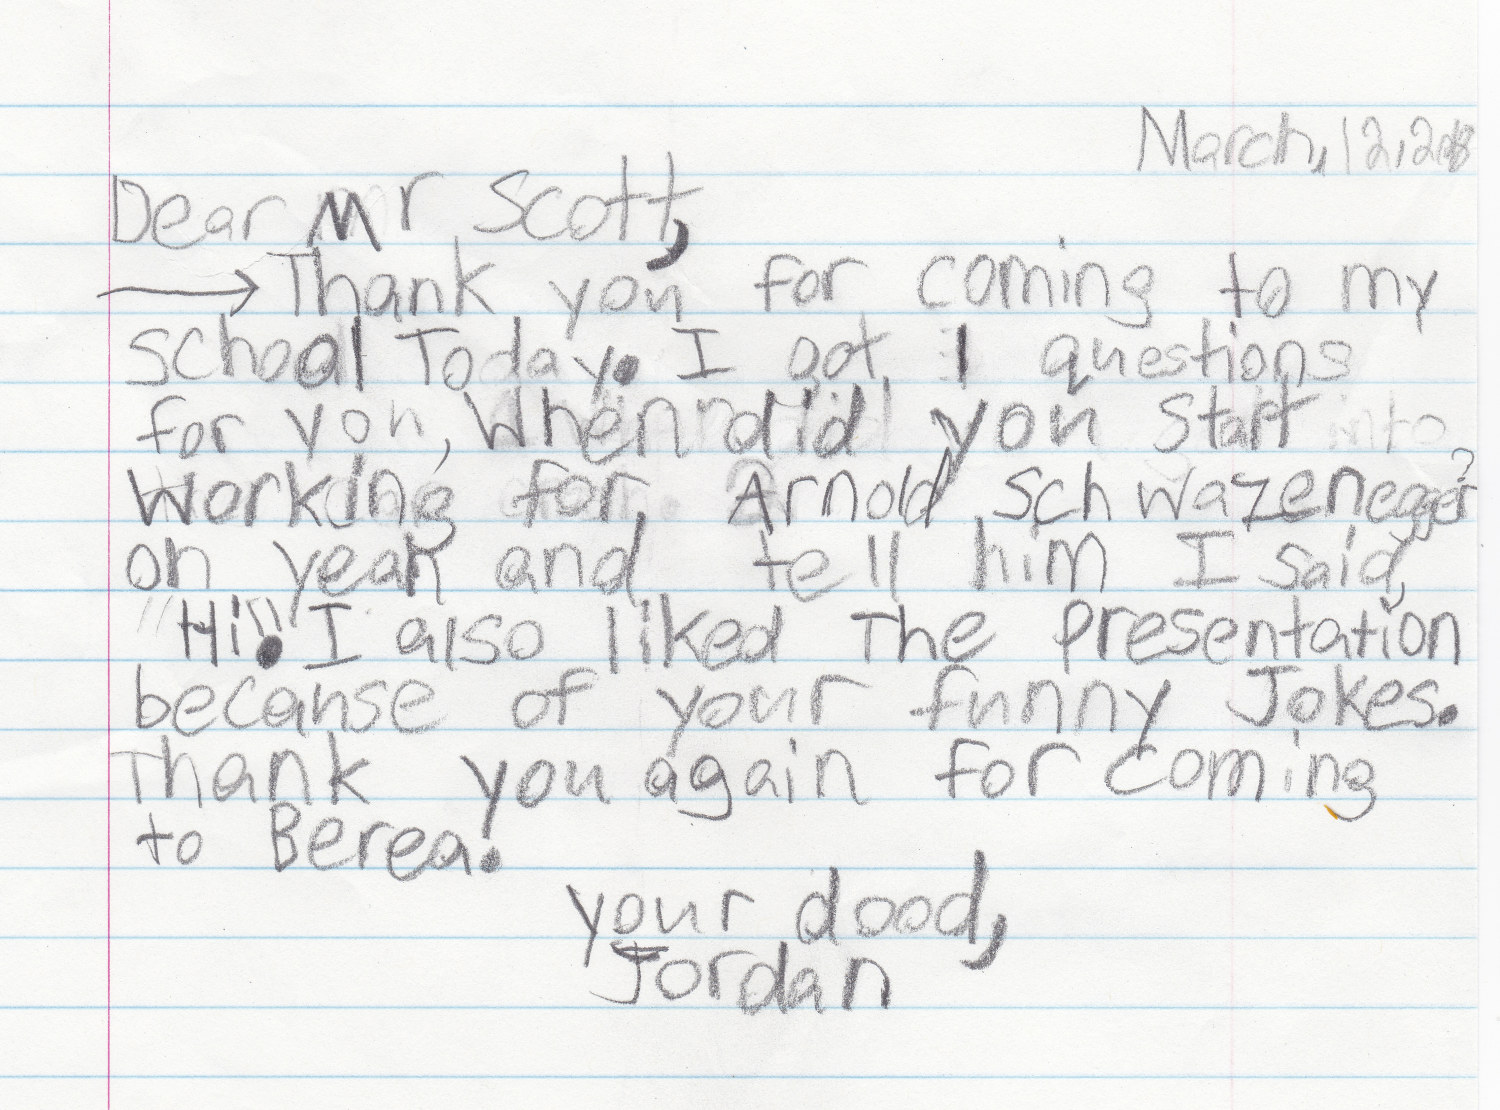 March, 12, 2018
Dear Mr Scott,
→ Thank you for coming to my
school Today. I got 1 questions
for you, When did you start
working for, Arnold Schwazeneager?
oh yeah and tell him I said,
"Hi". I also liked The presentation
because of your funny Jokes.
Thank you again for coming
to Berea.
your dood,
Jordan